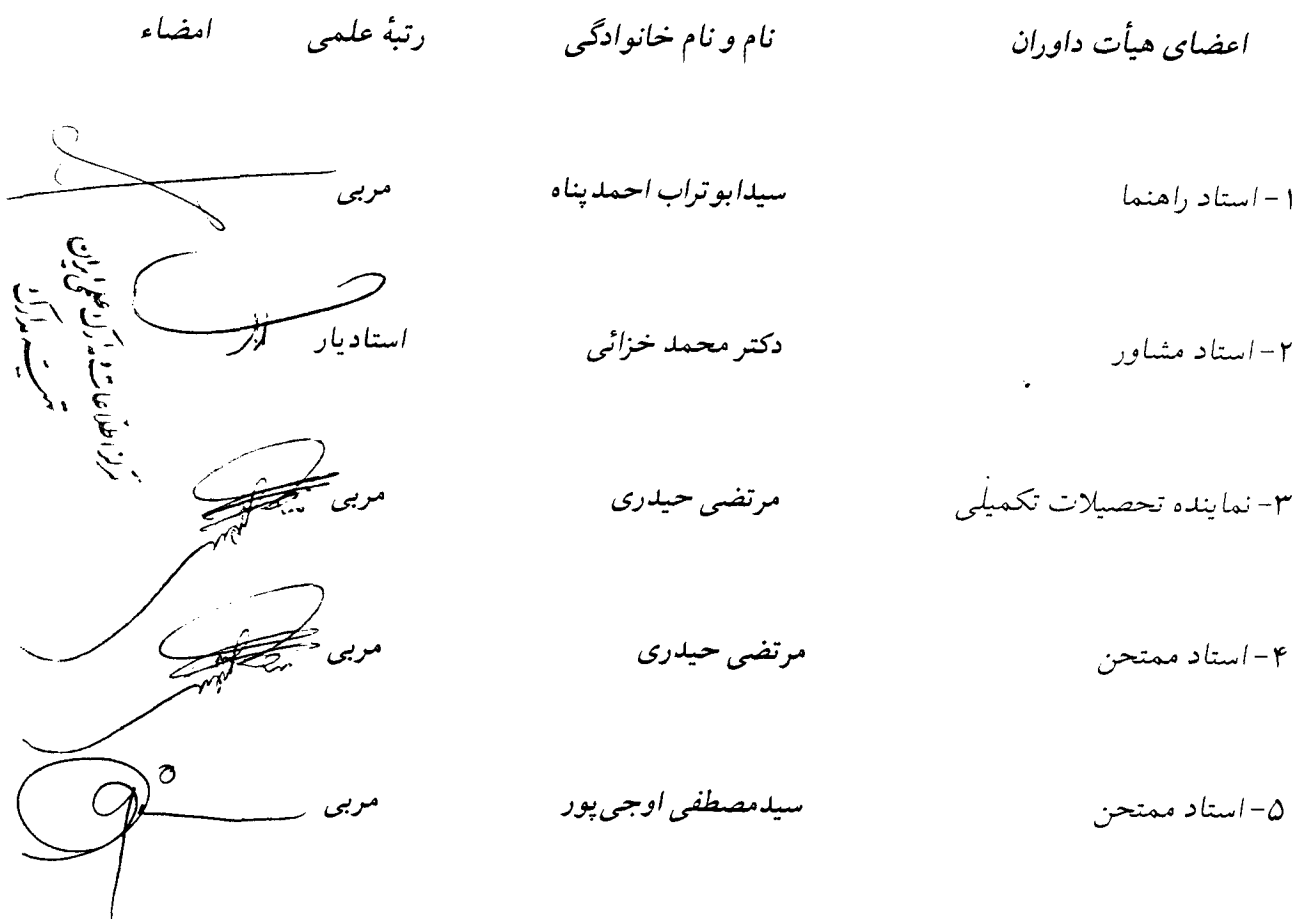 اعضای هیأت داوران نام و نام خانوادگی رتبهٔ علمی امضاء
۱- استاد راهنما سیدابوتراب احمدپناه مربی
۲- استاد مشاور دکتر محمد خزائی استادیار
۳- نماینده تحصیلات تکمیلی مرتضی حیدری مربی
۴- استاد ممتحن مرتضی حیدری مربی
۵- استاد ممتحن سیدمصطفی اوجی‌پور مربی
مرکز اطلاعات و مدارک علمی ایران
تهیه مدارک